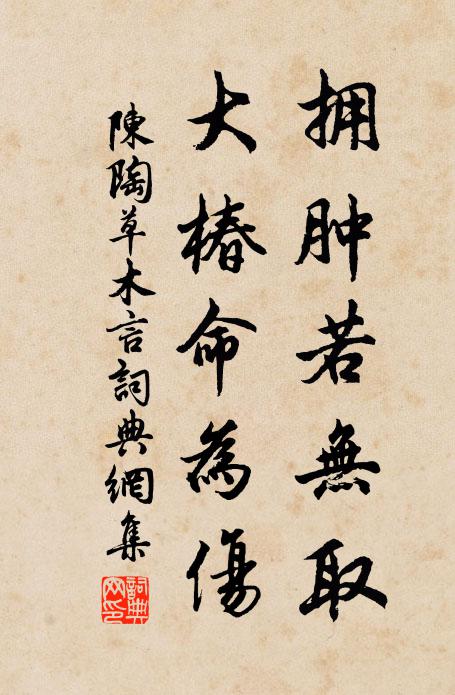 拥肿若無取
大椿命為傷
陳陶草木言詞典網集
詞典网印